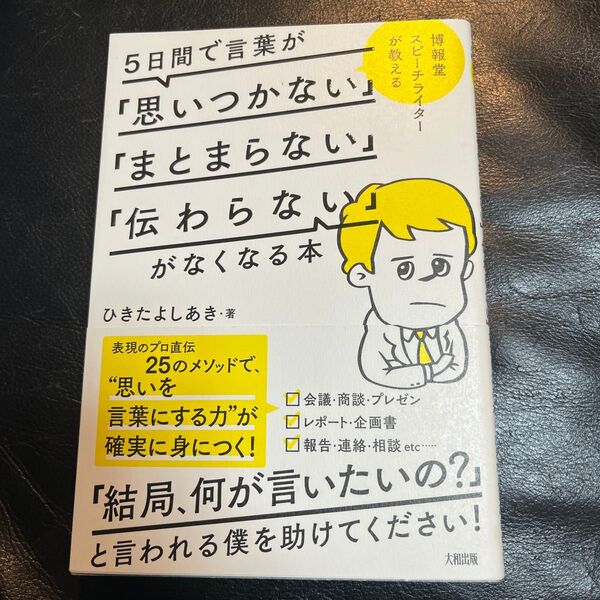 博報堂
スピーチライター
が教える
5日間で言葉が
「思いつかない」
「まとまらない」
「伝わらない」
がなくなる本
ひきたよしあき・著
表現のプロ直伝
25のメソッドで、
“思いを
言葉にする力”が
確実に身につく！
会議・商談・プレゼン
レポート・企画書
報告・連絡・相談 etc……
「結局、何が言いたいの？」
と言われる僕を助けてください！
大和出版